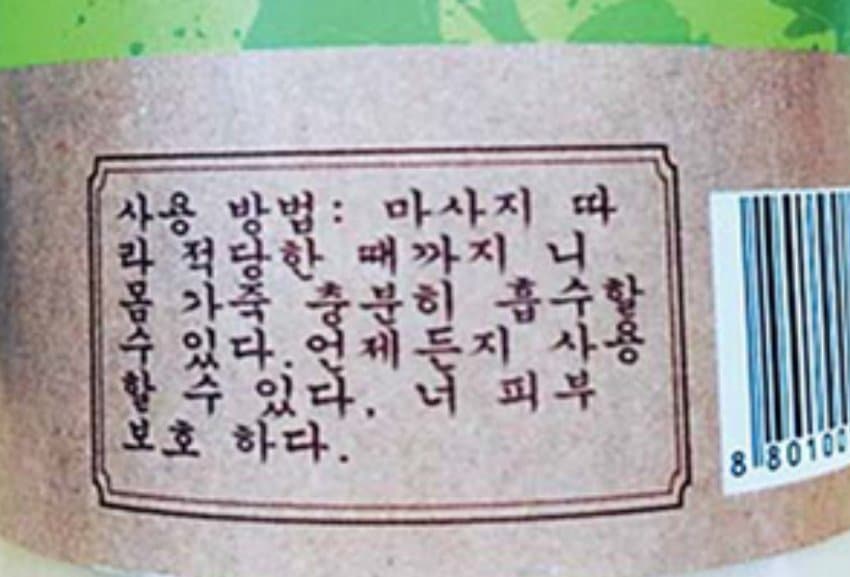 사용 방법: 마사지 따
라 적당한 때까지 니
몸 가죽 충분히 흡수할
수 있다.언제든지 사용
할 수 있다. 너 피부
보호 하다.
8 80100